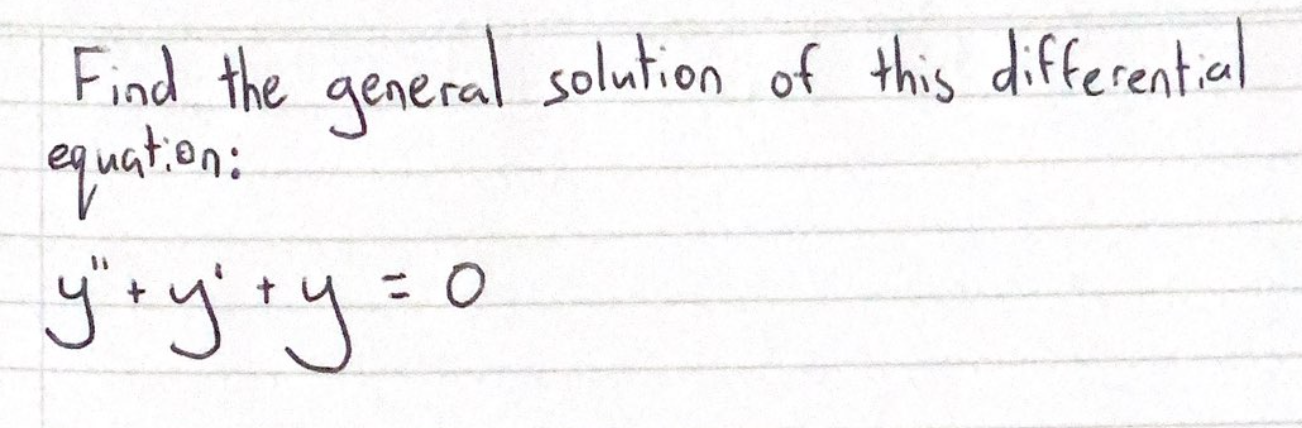 Find the general solution of this differential
equation:
y" + y' + y = 0